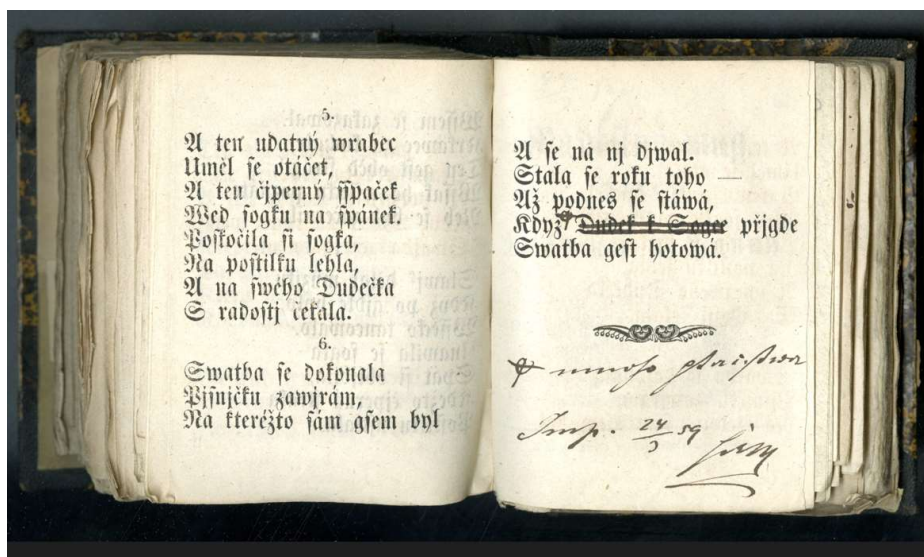 5.
A ten udatný wrabec
Uměl se otáčet,
A ten čjperný sspaček
Wed sogku na spánek.
Poskočila si sogka,
Na postilku lehla,
A na swého Dudečka
S radostj čekala.
6.
Swatba se dokonala
Pjsničku zawjrám,
Na kteréžto sám gsem byl
A se na nj djwal.
Stala se roku toho
Až podnes se stáwá,
Když Dudek k Sogce přjgde
Swatba gest hotowá.
mnoho ptactwa
Imp. 24/3 59